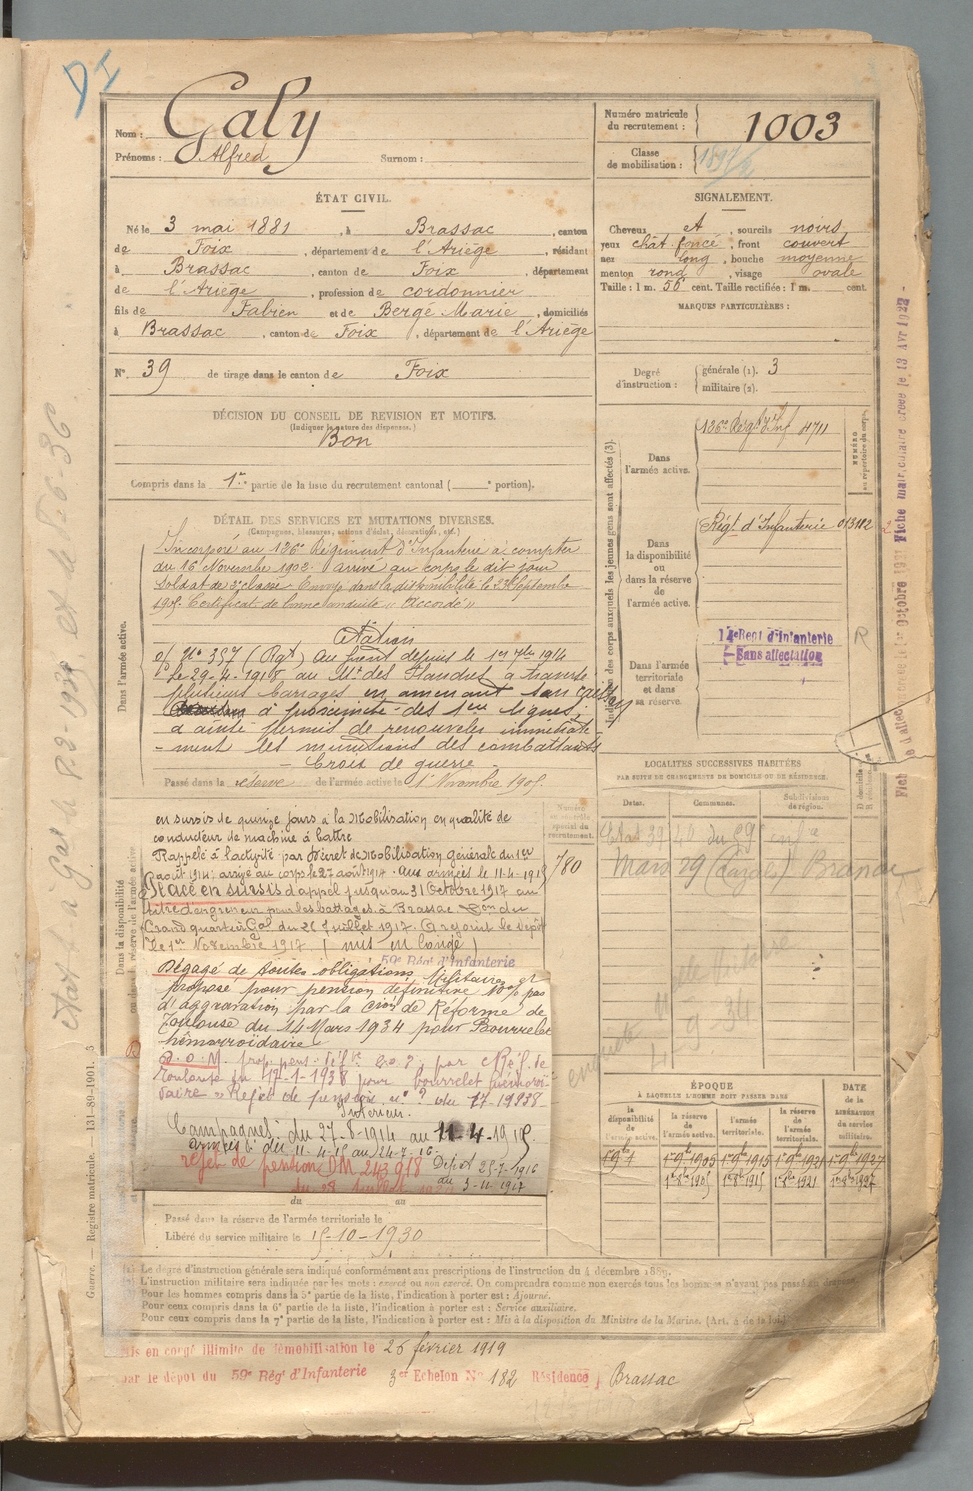 DI
Nom : Galy
Prénoms : Alfred Surnom :
Numéro matricule du recrutement : 1003
Classe de mobilisation :
ÉTAT CIVIL.
Né le 3 mai 1881, à Brassac, canton
de Foix, département de l'Ariège, résidant
à Brassac, canton de Foix, département
de l'Ariège, profession de cordonnier
fils de Fabien et de Berge Marie, domiciliés
à Brassac, canton de Foix, département de l'Ariège
N° 39 de tirage dans le canton de Foix
SIGNALEMENT.
Cheveux et, sourcils noirs
yeux chât. foncé, front couvert
nez long, bouche moyenne
menton rond, visage ovale
Taille : 1 m. 56 cent. Taille rectifiée : 1 m. cent.
MARQUES PARTICULIÈRES :
Degré d'instruction : générale (1). 3
militaire (2).
DÉCISION DU CONSEIL DE REVISION ET MOTIFS.
(Indiquer la nature des dispenses.)
Bon
Compris dans la 1re partie de la liste du recrutement cantonal ( e portion).
DÉTAIL DES SERVICES ET MUTATIONS DIVERSES.
(Campagnes, blessures, actions d'éclat, décorations, etc.)
Dans l'armée active.
Incorporé au 136e Régiment d'Infanterie à compter
du 16 Novembre 1902. arrivé au corps le dit jour
Soldat de 2e classe. Envoyé dans la disponibilité le 23 Septembre
Certificat de bonne conduite « Accordé »
Citation
O/ No 357 (Rgt) Au front depuis le 1er 7bre 1914
le 29-4-1918 au Mt des Flandres a traversé
plusieurs barrages en amenant son
à proximité des 1ères lignes,
a ainsi permis de renouveler immédiate
- ment les munitions des combattants
- Croix de guerre -
Passé dans la réserve de l'armée active le 1er Novembre 1905.
Indication des corps auxquels les jeunes gens sont affectés (3).
NUMÉRO au répertoire du corps.
Dans l'armée active. 136e Régt d'Inf 4711
Dans la disponibilité ou dans la réserve de l'armée active. Régt d'Infanterie 013112
Dans l'armée territoriale et dans sa réserve. 14e Regt d'Infanterie
Sans affectation
R
LOCALITÉS SUCCESSIVES HABITÉES
PAR SUITE DE CHANGEMENTS DE DOMICILE OU DE RÉSIDENCE.
Dates. Communes. Subdivisions de région.
Mars 29 (Cazals)
Numéro au contrôle spécial du recrutement.
780
en sursis de quinze jours à la Mobilisation en qualité de
conducteur de machine à battre
Rappelé à l'activité par Décret de Mobilisation générale du 1er
août 1914. arrivé au corps le 27 août 1914. aux armées le 11-4-1915
Placé en sursis d'appel jusqu'au 31 Octobre 1917 au
titre d'engreneur pour les battages à Brassac Son du
Grand quartier Gal du 26 Juillet 1917. A rejoint le dépôt
le 1er Novembre 1917. (mis en congé)
59e Rég d'Infanterie
Dégagé de toutes obligations Militaires et
proposé pour pension définitive 10% pas
d'aggravation par la Con de Réforme de
Toulouse du 14 Mars 1934 pour Bourrelet
hémorroïdaire
Toulouse du 17-1-1938 pour bourrelet hémorroï-
daire » Rejet de pension n° ? du 17-1-1938
Intérieur.
Campagnes : du 27-8-1914 au 11-4-1915.
armées : du 11-4-15 au 24-7-16
rejet de pension DM 243918 Dépôt 25-7-1916
au 3-11-1917
du au
Passé dans la réserve de l'armée territoriale le
Libéré du service militaire le 15-10-1930
ÉPOQUE
À LAQUELLE L'HOMME DOIT PASSER DANS
la disponibilité de l'armée active. la réserve de l'armée active. l'armée territoriale. la réserve de l'armée territoriale.
DATE de la LIBÉRATION du service militaire.
1er 9bre 1905 1er 9bre 1915 1er 9bre 1921 1er 9bre 1927
1er 8bre 1905 1er 8bre 1915 1er 8bre 1921 1er 8bre 1927
(1) Le degré d'instruction générale sera indiqué conformément aux prescriptions de l'instruction du 4 décembre 1889.
(2) L'instruction militaire sera indiquée par les mots : exercé ou non exercé. On comprendra comme non exercés tous les hommes n'ayant pas passé
Pour les hommes compris dans la 5e partie de la liste, l'indication à porter est : Ajourné.
Pour ceux compris dans la 6e partie de la liste, l'indication à porter est : Service auxiliaire.
Pour ceux compris dans la 7e partie de la liste, l'indication à porter est : Mis à la disposition du Ministre de la Marine. (Art. 4 de la loi)
Mis en congé illimité de démobilisation le 26 février 1919
par le dépôt du 59e Rég d'Infanterie 3er Echelon No 182 Résidence Brassac
Guerre. — Registre matricule. 131-89-1901. 3